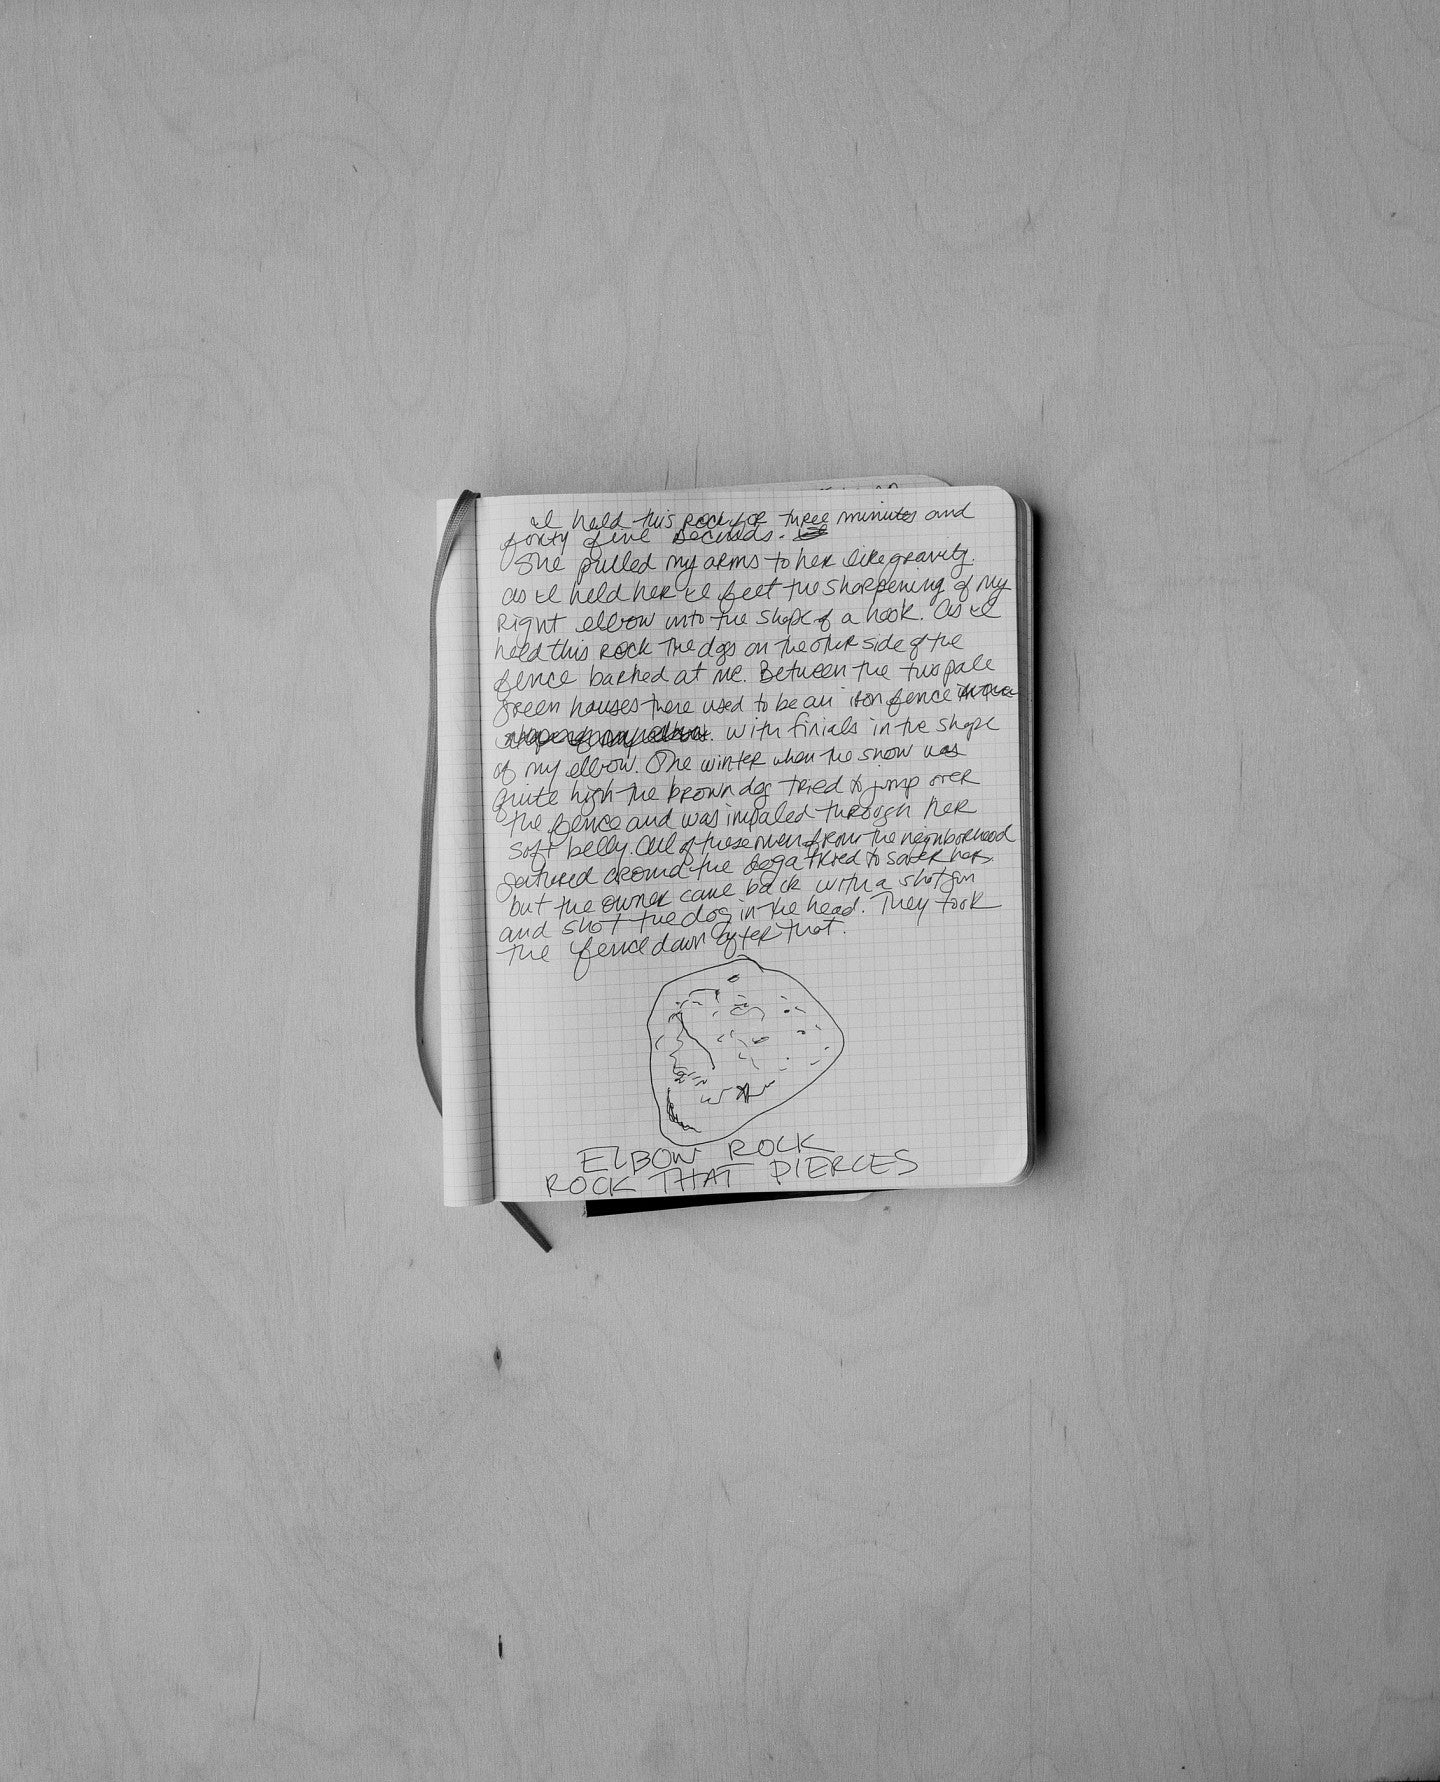 I held this rock for three minutes and
forty five seconds.
She pulled my arms to her like gravity.
as I held her I feet the sharpening of my
right elbow into the shape of a hook. as I
held this rock the dogs on the other side of the
fence barked at me. Between the two pale
green houses there used to be an iron fence
with finials in the shape
of my elbow. One winter when the snow was
quite high the brown dog tried to jump over
the fence and was impaled through her
soft belly. All of these men from the neighborhood
gathered around the dog tried to save her
but the owner came back with a shotgun
and shot the dog in the head. They took
the fence down after that.
ELBOW ROCK
ROCK THAT PIERCES